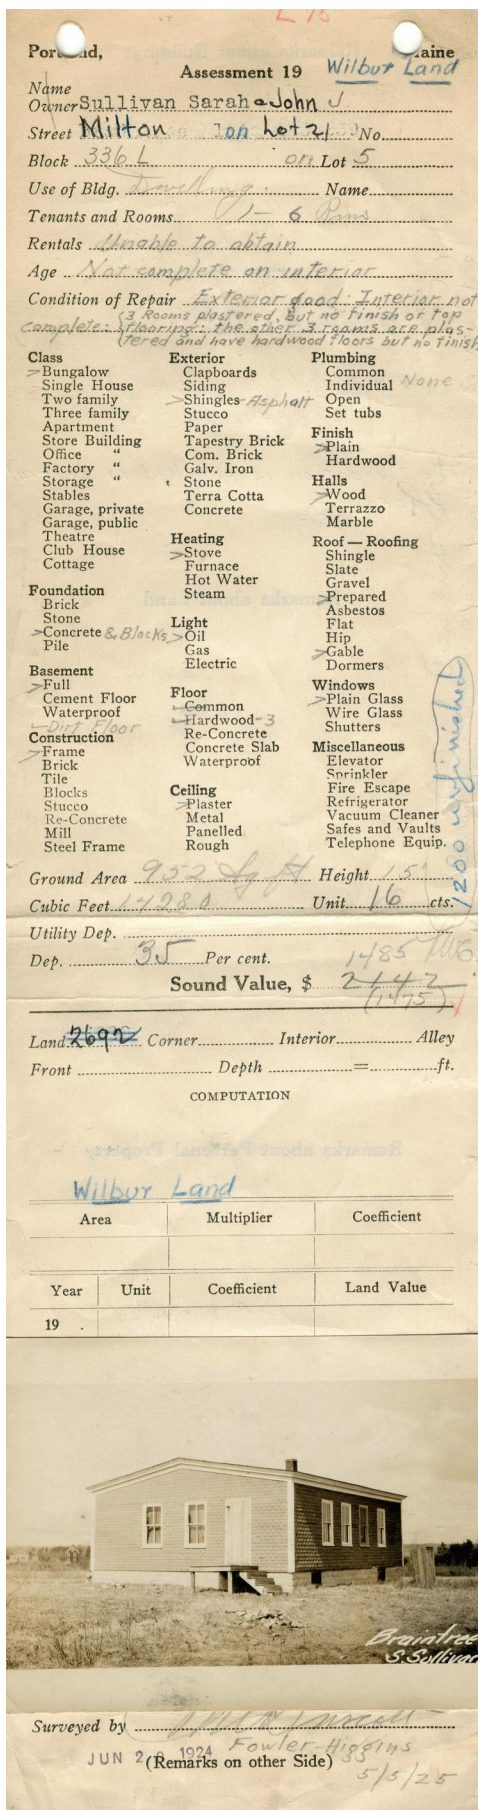 L 15
Portland, Maine
Assessment 19 Wilbur Land
Name
Owner Sullivan Sarah & John J
Street Milton on Lot 21 No.
Block 336 L on Lot 5
Use of Bldg. Dwelling Name
Tenants and Rooms 1 - 6 Rms
Rentals Unable to obtain
Age Not complete on interior
Condition of Repair Exterior good: Interior not
complete: (3 Rooms plastered, but no finish or top
flooring: the other 3 rooms are plas-
tered and have hardwood floors but no finish
Class
Bungalow
Single House
Two family
Three family
Apartment
Store Building
Office "
Factory "
Storage "
Stables
Garage, private
Garage, public
Theatre
Club House
Cottage
Foundation
Brick
Stone
Concrete & Blocks
Pile
Basement
Full
Cement Floor
Waterproof
Dirt Floor
Construction
Frame
Brick
Tile
Blocks
Stucco
Re-Concrete
Mill
Steel Frame
Exterior
Clapboards
Siding
Shingles - Asphalt
Stucco
Paper
Tapestry Brick
Com. Brick
Galv. Iron
Stone
Terra Cotta
Concrete
Heating
Stove
Furnace
Hot Water
Steam
Light
Oil
Gas
Electric
Floor
Common
Hardwood - 3
Re-Concrete
Concrete Slab
Waterproof
Ceiling
Plaster
Metal
Panelled
Rough
Plumbing
Common
Individual None
Open
Set tubs
Finish
Plain
Hardwood
Halls
Wood
Terrazzo
Marble
Roof — Roofing
Shingle
Slate
Gravel
Prepared
Asbestos
Flat
Hip
Gable
Dormers
Windows
Plain Glass
Wire Glass
Shutters
Miscellaneous
Elevator
Sprinkler
Fire Escape
Refrigerator
Vacuum Cleaner
Safes and Vaults
Telephone Equip.
1200 unfinished
Ground Area 952 Sq ft Height 15'
Cubic Feet 14280 Unit 16 cts.
Utility Dep.
Dep. 35 Per cent. 1485
Sound Value, $ 2142
(1475)
Land 2692 Corner Interior Alley
Front Depth = ft.
COMPUTATION
Wilbur Land
Area Multiplier Coefficient
Year Unit Coefficient Land Value
19 .
Braintree
S. Sullivan
Surveyed by
Fowler-Higgins
JUN 2 1924 (Remarks on other Side)
5/5/25